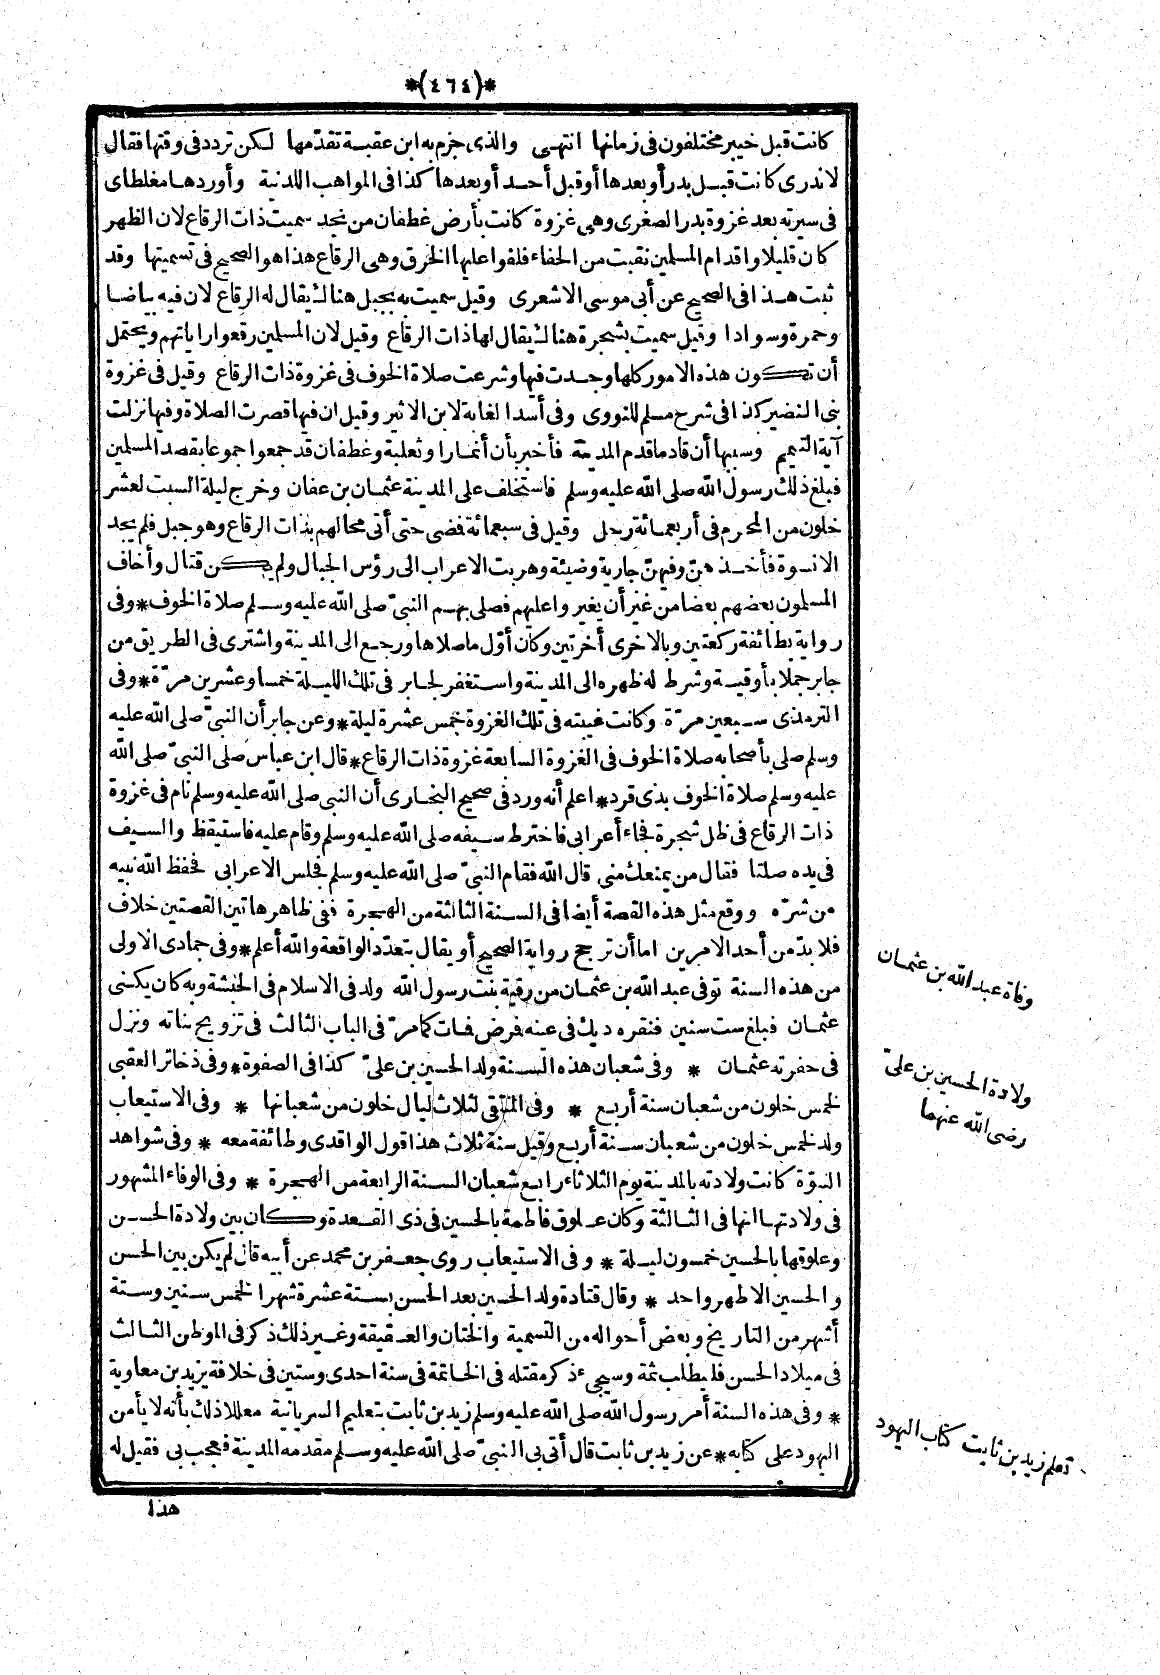 *(٤٦٤)*
كانت قبل خيبر مختلفون فى زمانها انتهى والذى جزم به ابن عقبة تقدّمها لكن تردد فى وقتها فقال
لاندرى كانت قبل بدر أو بعدها أو قبل أحد أو بعدها كذا فى المواهب اللدنية وأوردها مغلطاى
فى سيرته بعد غزوة بدر الصغرى وهى غزوة كانت بأرض غطفان من نجد سميت ذات الرقاع لان الظهر
كان قليلا واقدام المسلمين نقبت من الحفاء فلفوا عليها الخرق وهى الرقاع هذا هو الصحيح فى تسميتها وقد
ثبت هذا فى الصحيح عن أبى موسى الاشعرى وقيل سميت به بجبل هنالك يقال له الرقاع لان فيه بياضا
وحمرة وسوادا وقيل سميت بشجرة هنالك يقال لها ذات الرقاع وقيل لان المسلمين رقعوا راياتهم ويحتمل
أن تكون هذه الامور كلها وجدت فيها وشرعت صلاة الخوف فى غزوة ذات الرقاع وقيل فى غزوة
بنى النضير كذا فى شرح مسلم للنووى وفى أسد الغابة لابن الاثير وقيل ان فيها قصرت الصلاة وفيها نزلت
آية التيمم وسببها أن قادما قدم المدينة فأخبر بأن أنمارا وثعلبة وغطفان قد جمعوا جموعا بقصد المسلمين
فبلغ ذلك رسول الله صلى الله عليه وسلم فاستخلف على المدينة عثمان بن عفان وخرج ليلة السبت لعشر
خلون من المحرم فى أربعمائة رجل وقيل فى سبعمائة فضى حتى أتى محالهم بذات الرقاع وهو جبل فلم يجد
الانسوة فأخذهنّ وفيهنّ جارية وضيئة وهربت الاعراب الى رؤس الجبال ولم يكن قتال وأخاف
المسلمون بعضهم بعضا من غير أن يغيروا عليهم فصلى بهم النبىّ صلى الله عليه وسلم صلاة الخوف * وفى
رواية بطائفة ركعتين وبالاخرى أخرتين وكان أوّل ماصلاها ورجع الى المدينة واشترى فى الطريق من
جابر جملا بأوقية وشرط له ظهره الى المدينة واستغفر لجابر فى تلك الليلة خمسا وعشرين مرّة * وفى
الترمذى سبعين مرّة وكانت غيبته فى تلك الغزوة خمس عشرة ليلة * وعن جابر أن النبىّ صلى الله عليه
وسلم صلى بأصحابه صلاة الخوف فى الغزوة السابعة غزوة ذات الرقاع * قال ابن عباس صلى النبىّ صلى الله
عليه وسلم صلاة الخوف بذى قرد * اعلم أنه ورد فى صحيح البخارى أن النبى صلى الله عليه وسلم نام فى غزوة
ذات الرقاع فى ظل شجرة فجاء أعرابى فاخترط سيفه صلى الله عليه وسلم وقام عليه فاستيقظ والسيف
فى يده صلتا فقال من يمنعك منى قال الله فقام النبىّ صلى الله عليه وسلم فجلس الاعرابى فحفظ الله نبيه
من شرّه ووقع مثل هذه القصة أيضا فى السنة الثالثة من الهجرة ففى ظاهر هاتين القصتين خلاف
فلا بدّ من أحد الامرين اما أن ترجح رواية الصحيح أو يقال بتعدّد الواقعة والله أعلم * وفى جمادى الاولى
من هذه السنة توفى عبد الله بن عثمان من رقية بنت رسول الله ولد فى الاسلام فى الحبشة وبه كان يكنى
عثمان فبلغ ست سنين فنقره ديك فى عينه فمرض فمات كما مرّ فى الباب الثالث فى تزويج بناته ونزل
فى حفرته عثمان * وفى شعبان هذه السنة ولد الحسين بن علىّ كذا فى الصفوة * وفى ذخائر العقبى
لخمس خلون من شعبان سنة أربع * وفى المنتقى لثلاث ليال خلون من شعبانها * وفى الاستيعاب
ولد لخمس خلون من شعبان سنة أربع وقيل سنة ثلاث هذا قول الواقدى وطائفة معه * وفى شواهد
النبوّة كانت ولادته بالمدينة يوم الثلاثاء رابع شعبان السنة الرابعة من الهجرة * وفى الوفاء المشهور
فى ولادتها انها فى الثالثة وكان علوق فاطمة بالحسين فى ذى القعدة وكان بين ولادة الحسن
وعلوقها بالحسين خمسون ليلة * وفى الاستيعاب روى جعفر بن محمد عن أبيه قال لم يكن بين الحسن
والحسين الاطهر واحد * وقال قتادة ولد الحسين بعد الحسن بستة عشرة شهرا لخمس سنين وستة
أشهر من التاريخ وبعض أحواله من التسمية والختان والعقيقة وغير ذلك ذكر فى الموطن الثالث
فى ميلاد الحسن فليطلب ثمة وسيجىء ذكر مقتله فى الخاتمة فى سنة احدى وستين فى خلافة يزيد بن معاوية
* وفى هذه السنة أمر رسول الله صلى الله عليه وسلم زيد بن ثابت بتعليم السريانية معللا ذلك بأنه لا يأمن
اليهود على كتابه * عن زيد بن ثابت قال أتى بى النبىّ صلى الله عليه وسلم مقدمه المدينة فعجب بى فقيل له
هذا
وفاة عبد الله بن عثمان
ولادة الحسين بن علىّ
رضى الله عنهما
تعلم زيد بن ثابت كتاب اليهود